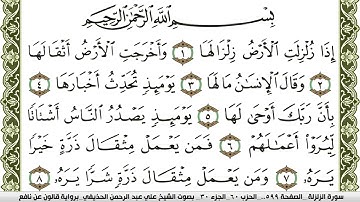 بِسْمِ اللَّهِ الرَّحْمَٰنِ الرَّحِيمِ
إِذَا زُلْزِلَتِ الْأَرْضُ زِلْزَالَهَا ١ وَأَخْرَجَتِ الْأَرْضُ أَثْقَالَهَا
٢ وَقَالَ الْإِنسَٰنُ مَا لَهَا ٣ يَوْمَئِذٍ تُحَدِّثُ أَخْبَارَهَا ٤
بِأَنَّ رَبَّكَ أَوْحَىٰ لَهَا ٥ يَوْمَئِذٍ يَصْدُرُ النَّاسُ أَشْتَاتًا
لِّيُرَوْا أَعْمَٰلَهُمْ ٦ فَمَن يَعْمَلْ مِثْقَالَ ذَرَّةٍ خَيْرًا
يَرَهُ ٧ وَمَن يَعْمَلْ مِثْقَالَ ذَرَّةٍ شَرًّا يَرَهُ ٨
سورة الزلزلة . الصفحة ٥٩٩ . الحزب ٦٠ . الجزء ٣٠ . بصوت الشيخ علي عبد الرحمن الحذيفي . برواية قالون عن نافع